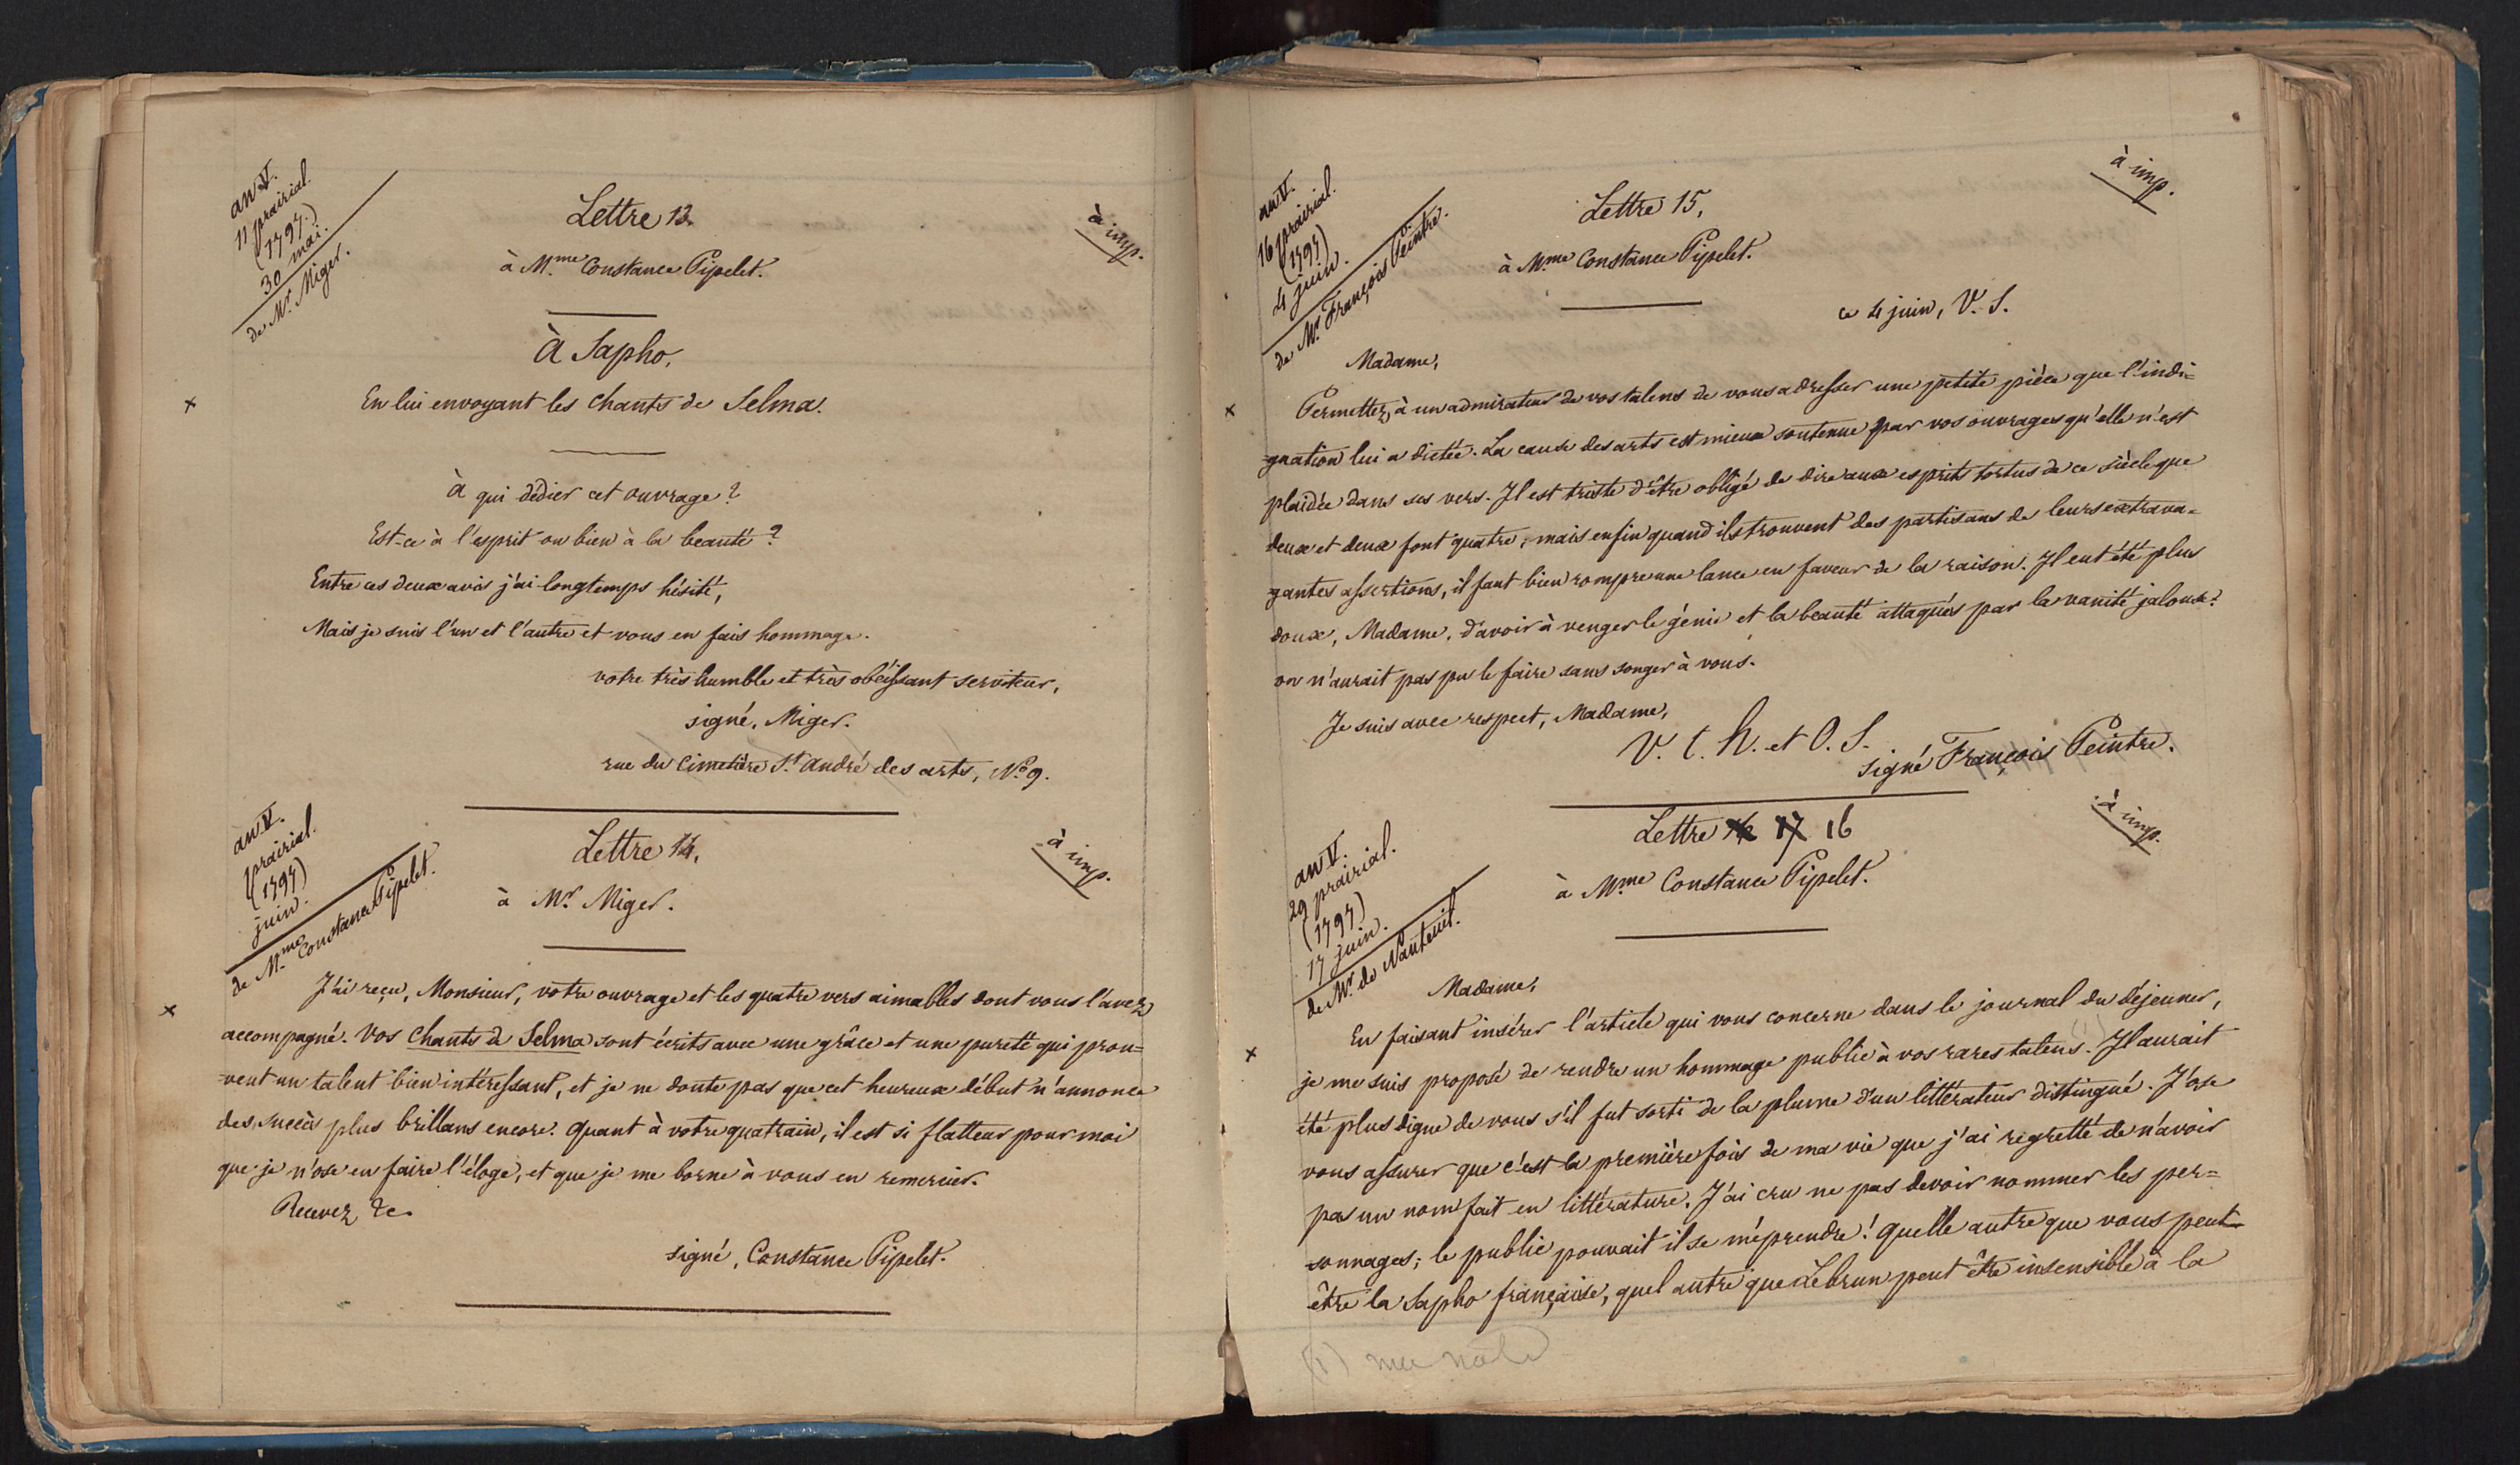 an V.
11 prairial.
(1797.)
30 mai.
de Mr. Miger.
Lettre 13.
à imp.
à Mme Constance Pipelet.
À Sapho,
En lui envoyant les chants de Selma.
À qui dédier cet ouvrage ?
Est-ce à l'esprit ou bien à la beauté ?
Entre ces deux avis j'ai longtemps hésité,
Mais je suis l'un et l'autre et vous en fais hommage.
votre très humble et très obéissant serviteur,
signé, Miger.
rue du Cimetière St. André des arts, No. 9.
an V.
prairial.
(1797)
juin.
de Mme Constance Pipelet.
Lettre 14.
à imp.
à Mr. Miger.
J'ai reçu, Monsieur, votre ouvrage et les quatre vers aimables dont vous l'avez
accompagné. Vos Chants de Selma sont écrits avec une grâce et une pureté qui prou=
=vent un talent bien intéressant, et je ne doute pas que cet heureux début n'annonce
des succès plus brillans encore. Quant à votre quatrain, il est si flatteur pour moi
que je n'ose en faire l'éloge, et que je me borne à vous en remercier.
Recevez &c.
signé, Constance Pipelet.
an V.
16 prairial.
(1797)
4 juin.
de Mr. François Peintre.
Lettre 15,
à imp.
à Mme Constance Pipelet.
ce 4 juin, V. S.
Madame,
Permettez à un admirateur de vos talens de vous adresser une petite pièce que l'indi=
=gnation lui a dictée. La cause des arts est mieux soutenue par vos ouvrages qu'elle n'est
plaidée dans ses vers. Il est triste d'être obligé de dire aux esprits tortus de ce siècle que
deux et deux font quatre, mais enfin quand ils trouvent des partisans de leurs extrava=
gantes assertions, il faut bien rompre une lance en faveur de la raison. Il eut été plus
doux, Madame, d'avoir à venger le génie et la beauté attaqués par la vanité jalouse ?
on n'aurait pas pu le faire sans songer à vous.
Je suis avec respect, Madame,
V. t. h. et O. S.
signé François Peintre.
an V.
29 prairial.
(1797)
17 juin.
de Mr. de Nanteuil.
Lettre 17 16
à imp.
à Mme Constance Pipelet.
Madame,
En faisant insérer l'article qui vous concerne dans le journal du déjeuner,
je me suis proposé de rendre un hommage public à vos rares talens. (1) Il aurait
été plus digne de vous s'il fut sorti de la plume d'un littérateur distingué. J'ose
vous assurer que c'est la première fois de ma vie que j'ai regretté de n'avoir
pas un nom fait en littérature. J'ai cru ne pas devoir nommer les per=
sonnages ; le public pouvait il se méprendre ! quelle autre que vous peut
être la Sapho française, quel autre que Lebrun peut être insensible à la
(1) ma note